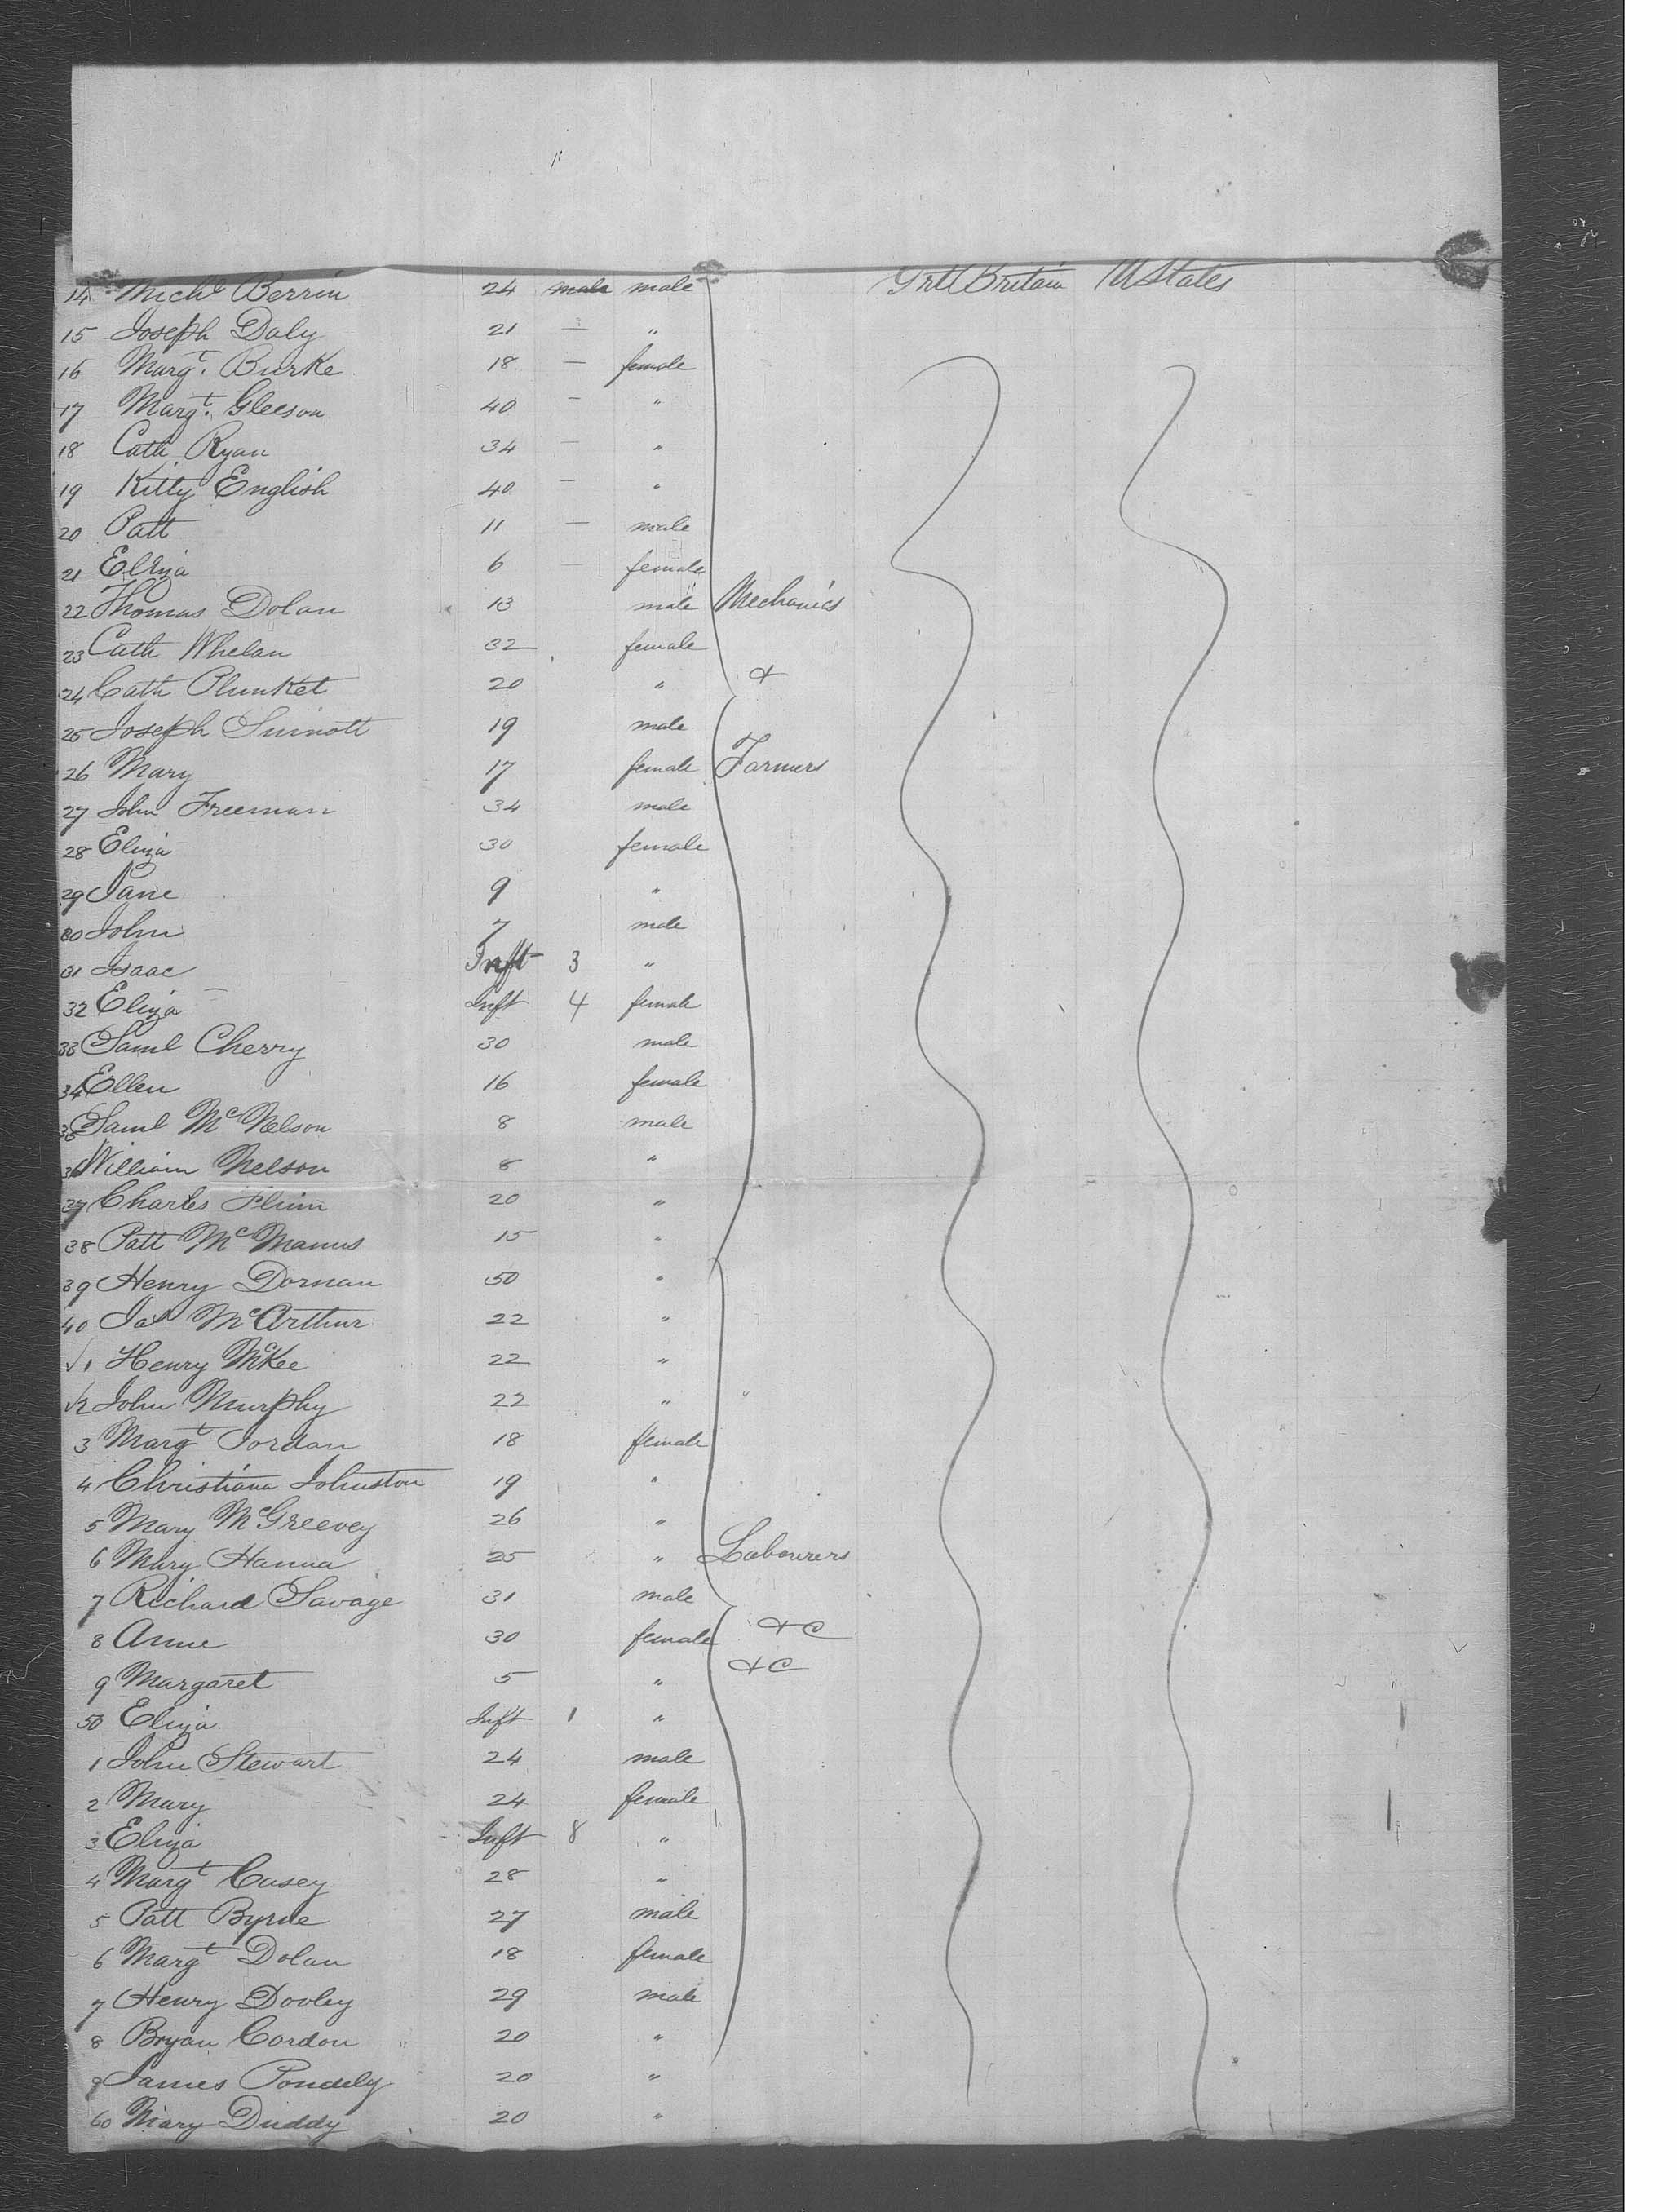 14 Michl Berrin 24 male male Grt Britain U States
15 Joseph Daly 21 — "
16 Margt. Burke 18 — female
17 Margt. Gleeson 40 — "
18 Cath Ryan 34 — "
19 Kitty English 40 — "
20 Patt 11 — male
21 Eliza 6 — female
22 Thomas Dolan 13 male Mechanics
23 Cath Whelan 32 female
24 Cath Plunket 20 " &
25 Joseph Sinnott 19 male
26 Mary 17 female Farmers
27 John Freeman 34 male
28 Eliza 30 female
29 Jane 9 "
30 John 7 male
31 Isaac Inft 3 "
32 Eliza Inft 4 female
33 Saml Cherry 30 male
34 Ellen 16 female
35 Saml McNelson 8 male
36 William Nelson 8 "
37 Charles 20 "
38 Patt McManus 15 "
39 Henry Dornan 50 "
40 Jas McArthur 22 "
√1 Henry McKee 22 "
√2 John Murphy 22 "
3 Margt Jordan 18 female
4 Christiana Johnston 19 "
5 Mary McGreevey 26 "
6 Mary Hanna 25 " Labourers
7 Richard Savage 31 male
8 Anne 30 female &c
9 Margaret 5 " &c
50 Eliza Inft 1 "
1 John Stewart 24 male
2 Mary 24 female
3 Eliza Inft 8 "
4 Margt Casey 28 "
5 Patt Byrne 27 male
6 Margt Dolan 18 female
7 Henry Dooley 29 male
8 Bryan Cordon 20 "
9 James 20 "
60 Mary Duddy 20 "